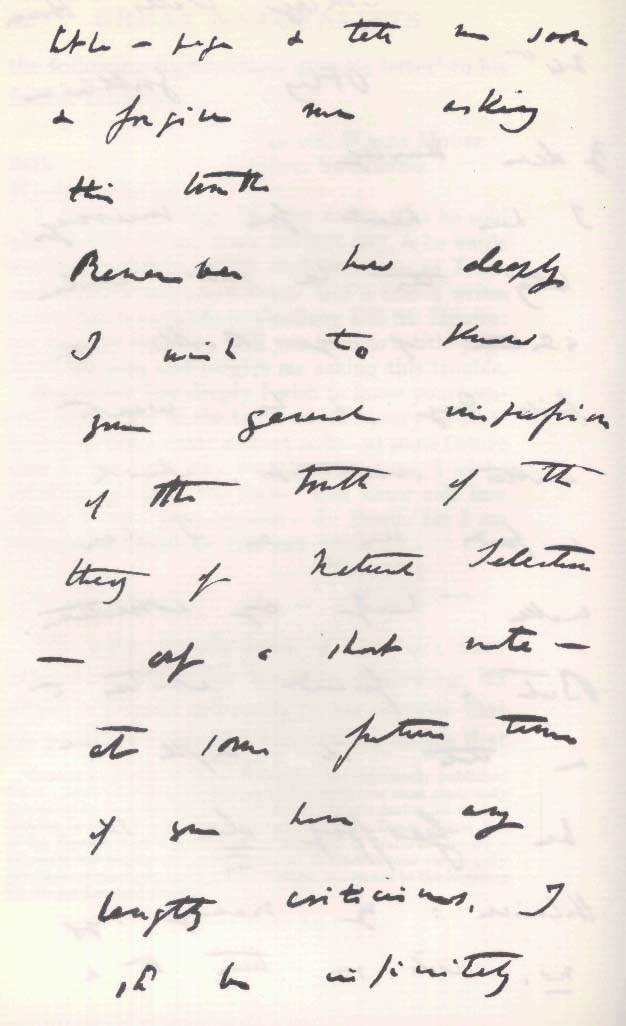 title-page & tell me soon
& forgive me asking
this trouble
Remember how deeply
I wish to know
your general impression
of the truth of the
theory of Natural Selection
— only a short note —
at some future time
if you have any
lengthy criticisms, I
shd be infinitely